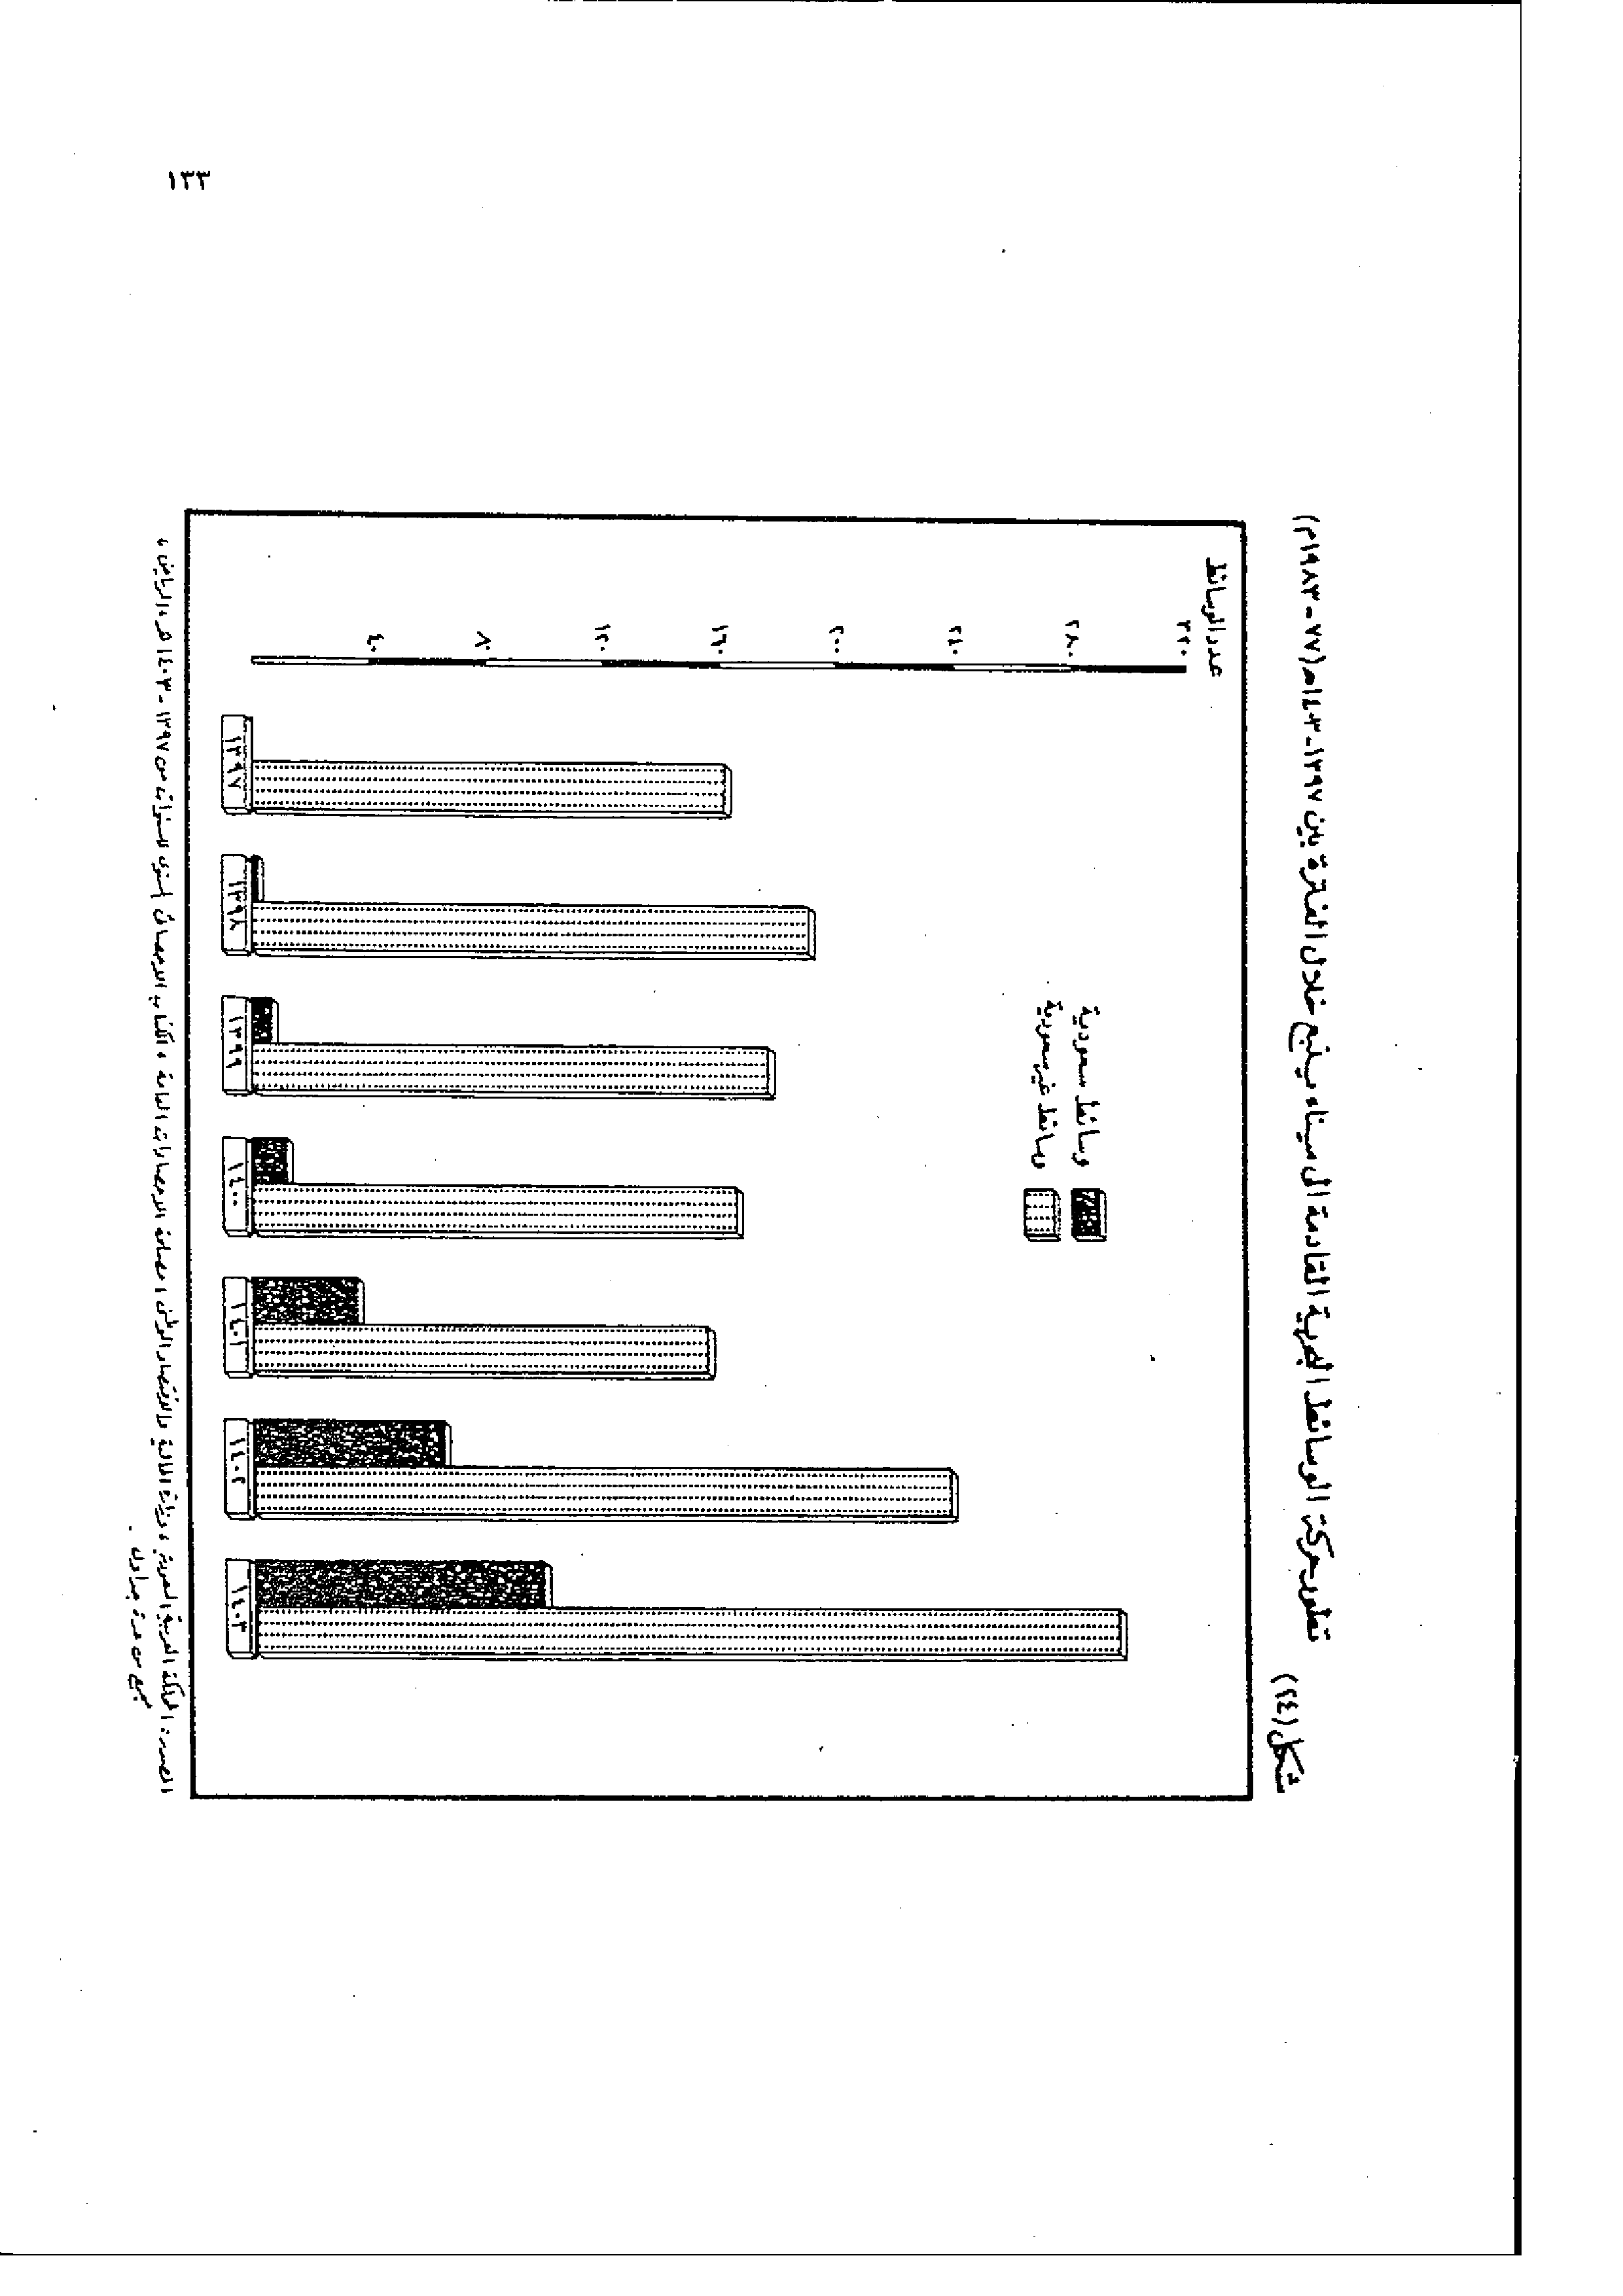 ١٣٣
شكل (٢٤)
تطور حركة الوسائط البحرية القادمة الى ميناء ينبع خلال الفترة بين ١٣٩٧-١٤٠٣هـ (٧٧-١٩٨٣م)
عدد الوسائط
٣٢٠
٢٨٠
٢٤٠
٢٠٠
١٦٠
١٢٠
٨٠
٤٠
وسائط سعودية
وسائط غير سعودية
١٣٩٧
١٣٩٨
١٣٩٩
١٤٠٠
١٤٠١
١٤٠٢
١٤٠٣
المصدر: المملكة العربية السعودية، وزارة المالية والاقتصاد الوطنى، مصلحة الاحصاءات العامة، الكتاب الاحصائى السنوى للسنوات من ١٣٩٧-١٤٠٣هـ، الرياض،
جمع من عدة جداول.